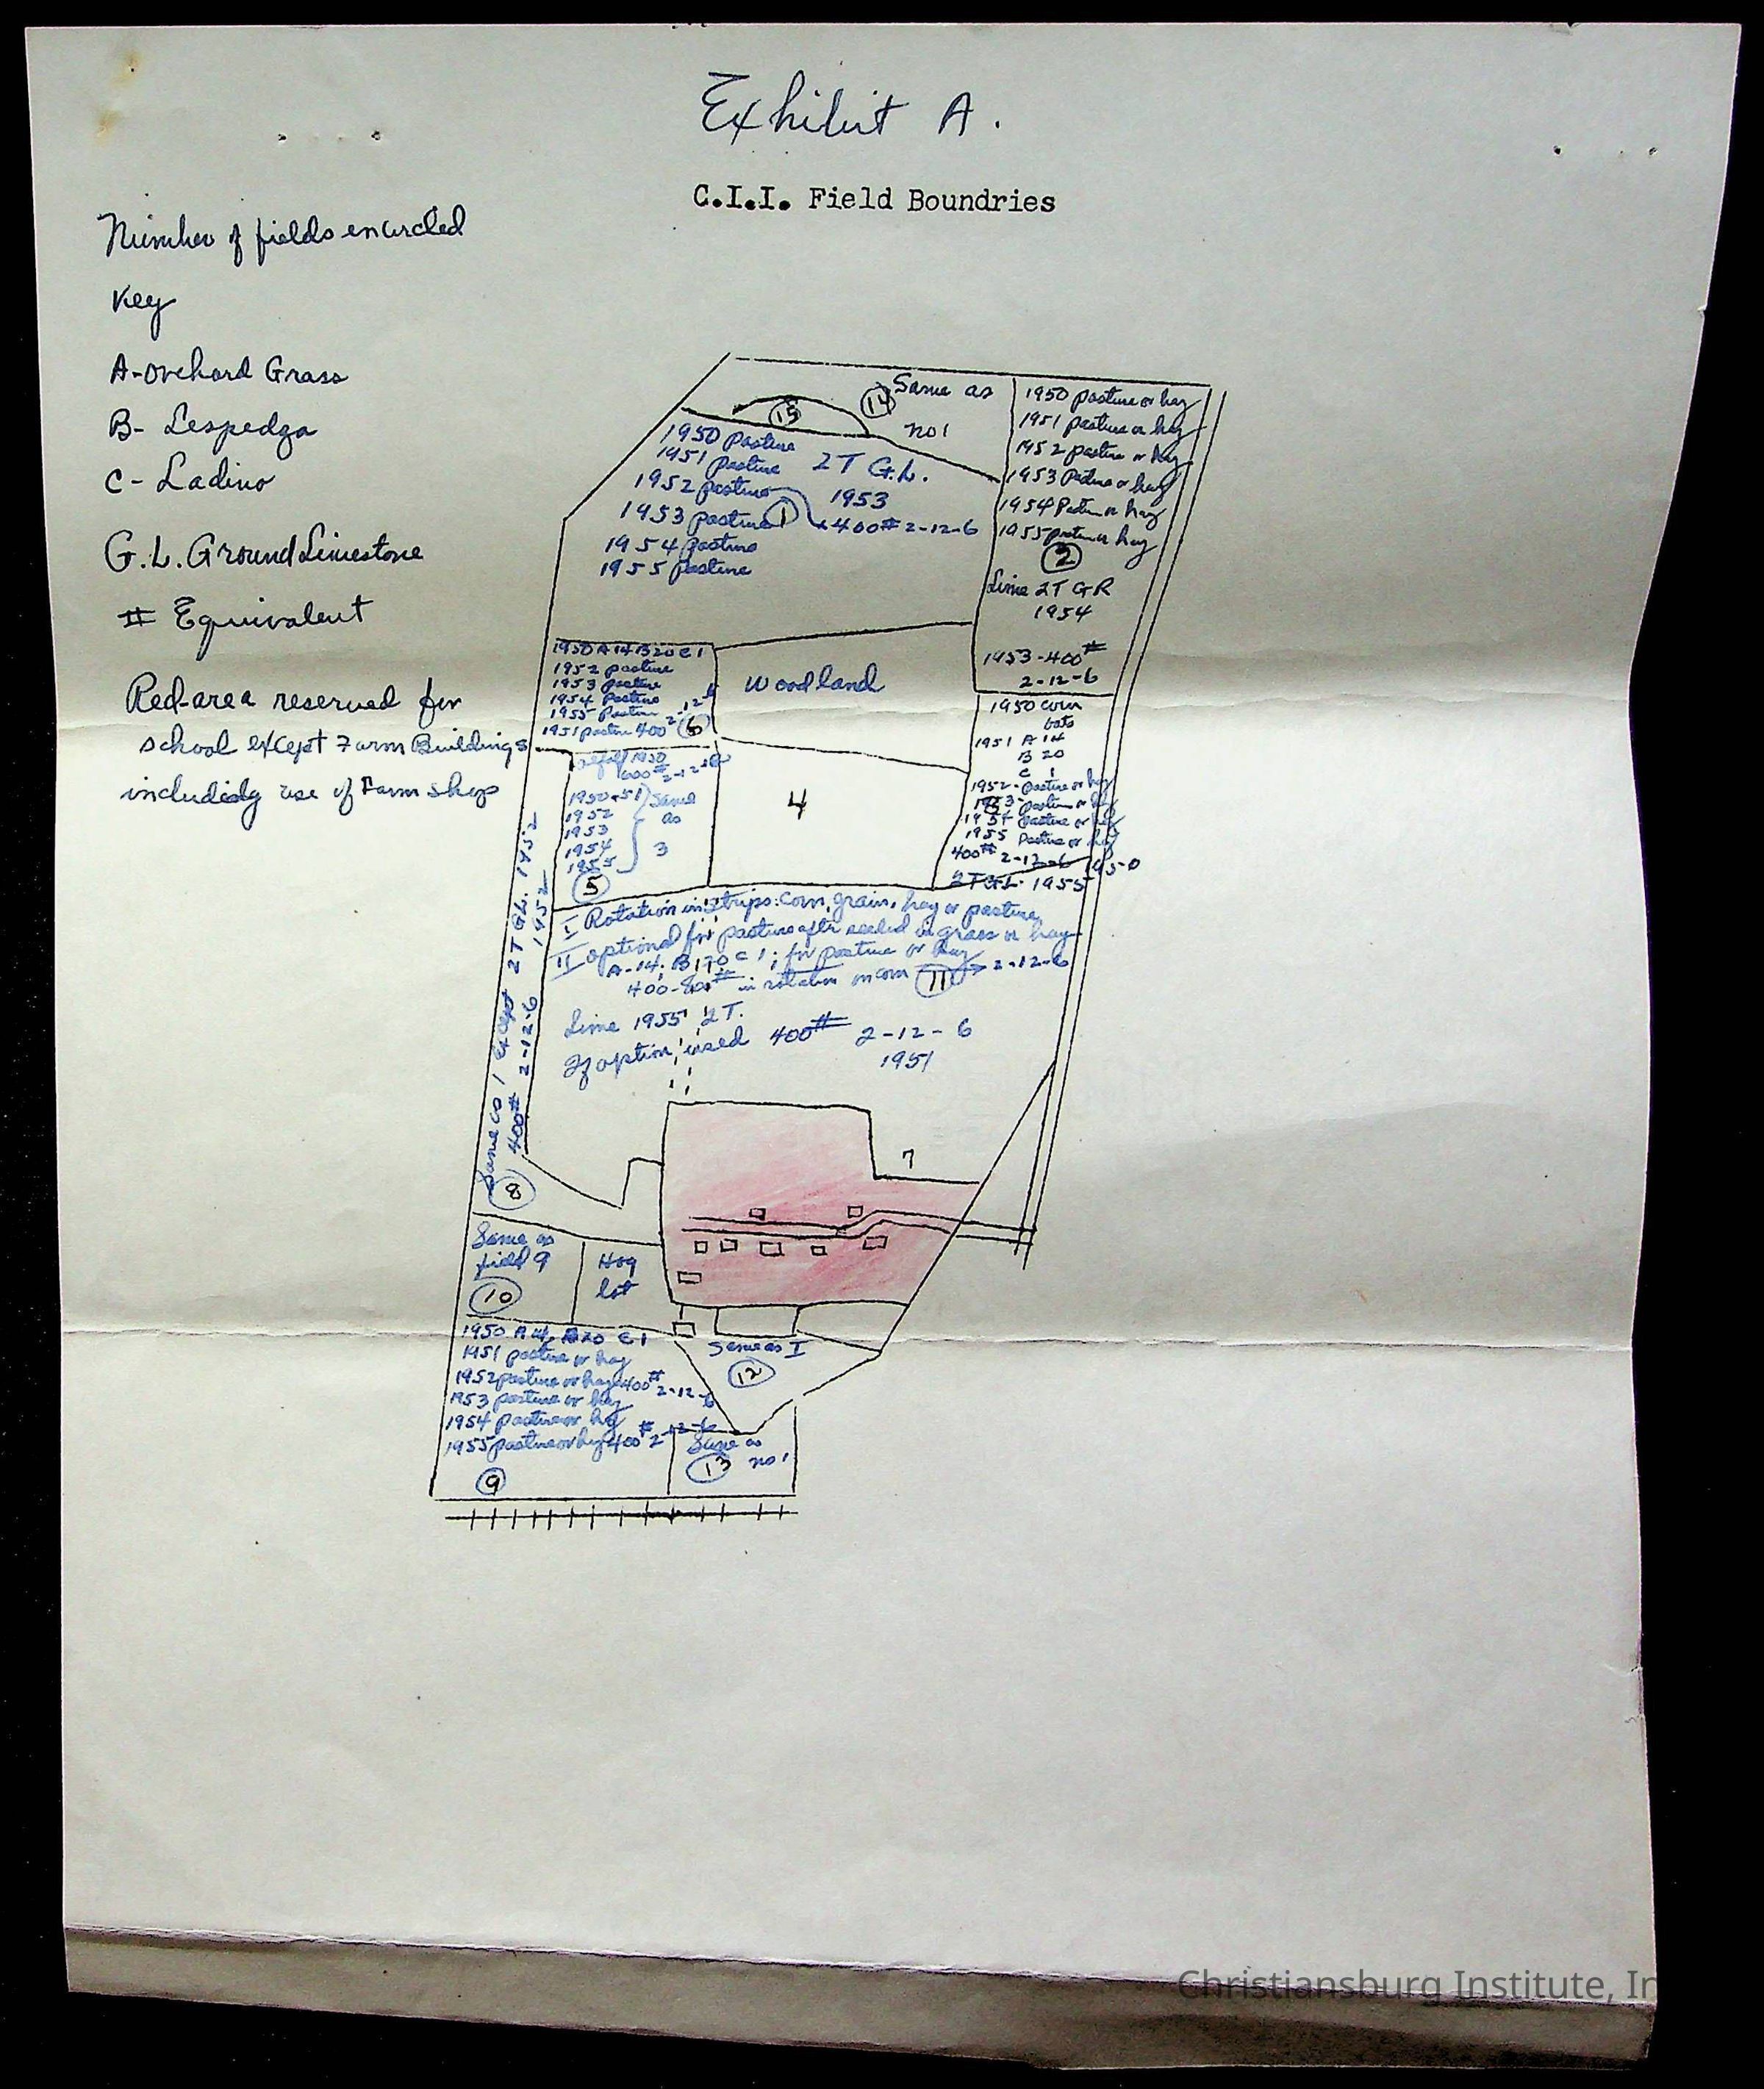 Exhibit A.
C.I.I. Field Boundries
Number of fields encircled
Key
A-Orchard Grass
B- Lespedga
C- Ladino
G.L. Ground Limestone
# Equivalent
Red-area reserved for
school except Farm Buildings
includidg use of Farm shop
15
14 Same as
no 1
1950 Pasture
1951 pasture
1952 pasture
1953 pasture
1954 pasture
1955 pasture
1
2T G.L.
1953
400# 2-12-6
1950 pasture or hay
1951 pasture or hay
1952 pasture or hay
1953 Pasture or hay
1954 Pasture or hay
1955 pasture or hay
2
Lime 2T GR
1954
1953-400#
2-12-6
1950 A14 B20 C1
1952 pasture
1953 pasture
1954 Pasture
1955 Pasture
1951 pasture 400 2-12-6
6
Woodland
1950 corn
oats
1951 A 14
B 20
C 1
1952- pasture or hay
1953- pasture or hay
1954 pasture or hay
1955 Pasture or hay
400# 2-12-6 1950
2T GL. 1955
1950
600# 2-12-6
1950-51
1952
1953
1954
1955
Same
as
3
5
4
I Rotation in strips: corn, grain, hay or pasture
II optional for pasture after seeded in grass or hay
A-14. B 170 C 1; for pasture or hay
in rotation on corn 11 2-12-6
Lime 1955 2T.
If option used 400# 2-12-6
1951
Same as 1 except 2T GL. 1952
400# 2-12-6 1952
8
7
Same as
field 9
10
Hog
lot
1950 A14, B20 C1
1951 pasture or hay
1952 pasture or hay 400# 2-12-6
1953 pasture or hay
1954 pasture or hay
1955 pasture or hay 400# 2-12-6
9
Same as I
12
Same as
13 no 1
Christiansburg Institute, In